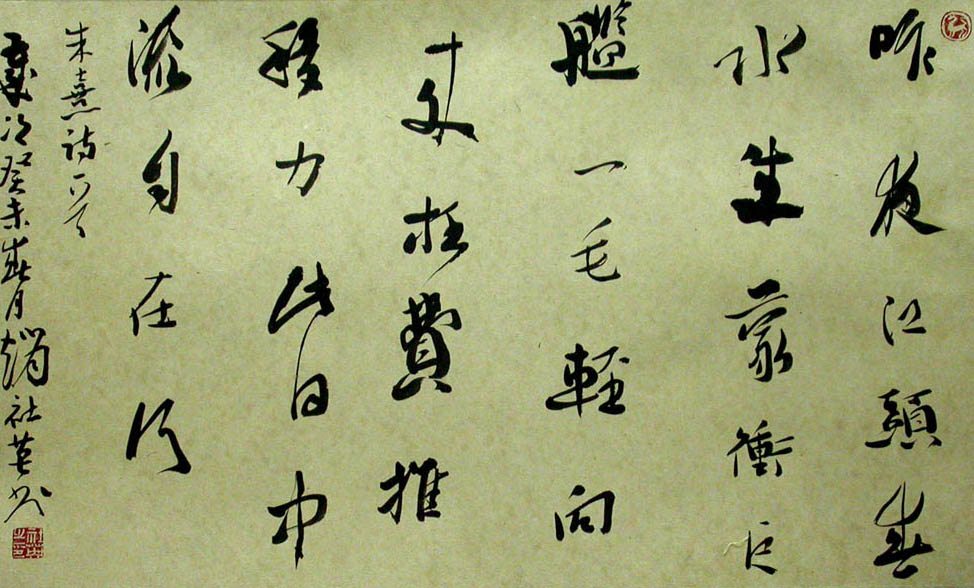 昨夜江頭春
水生蒙衝巨
艦一毛輕向
来枉費推
移力此日中
流自在行
朱熹诗一首
歲次癸未春月社英书